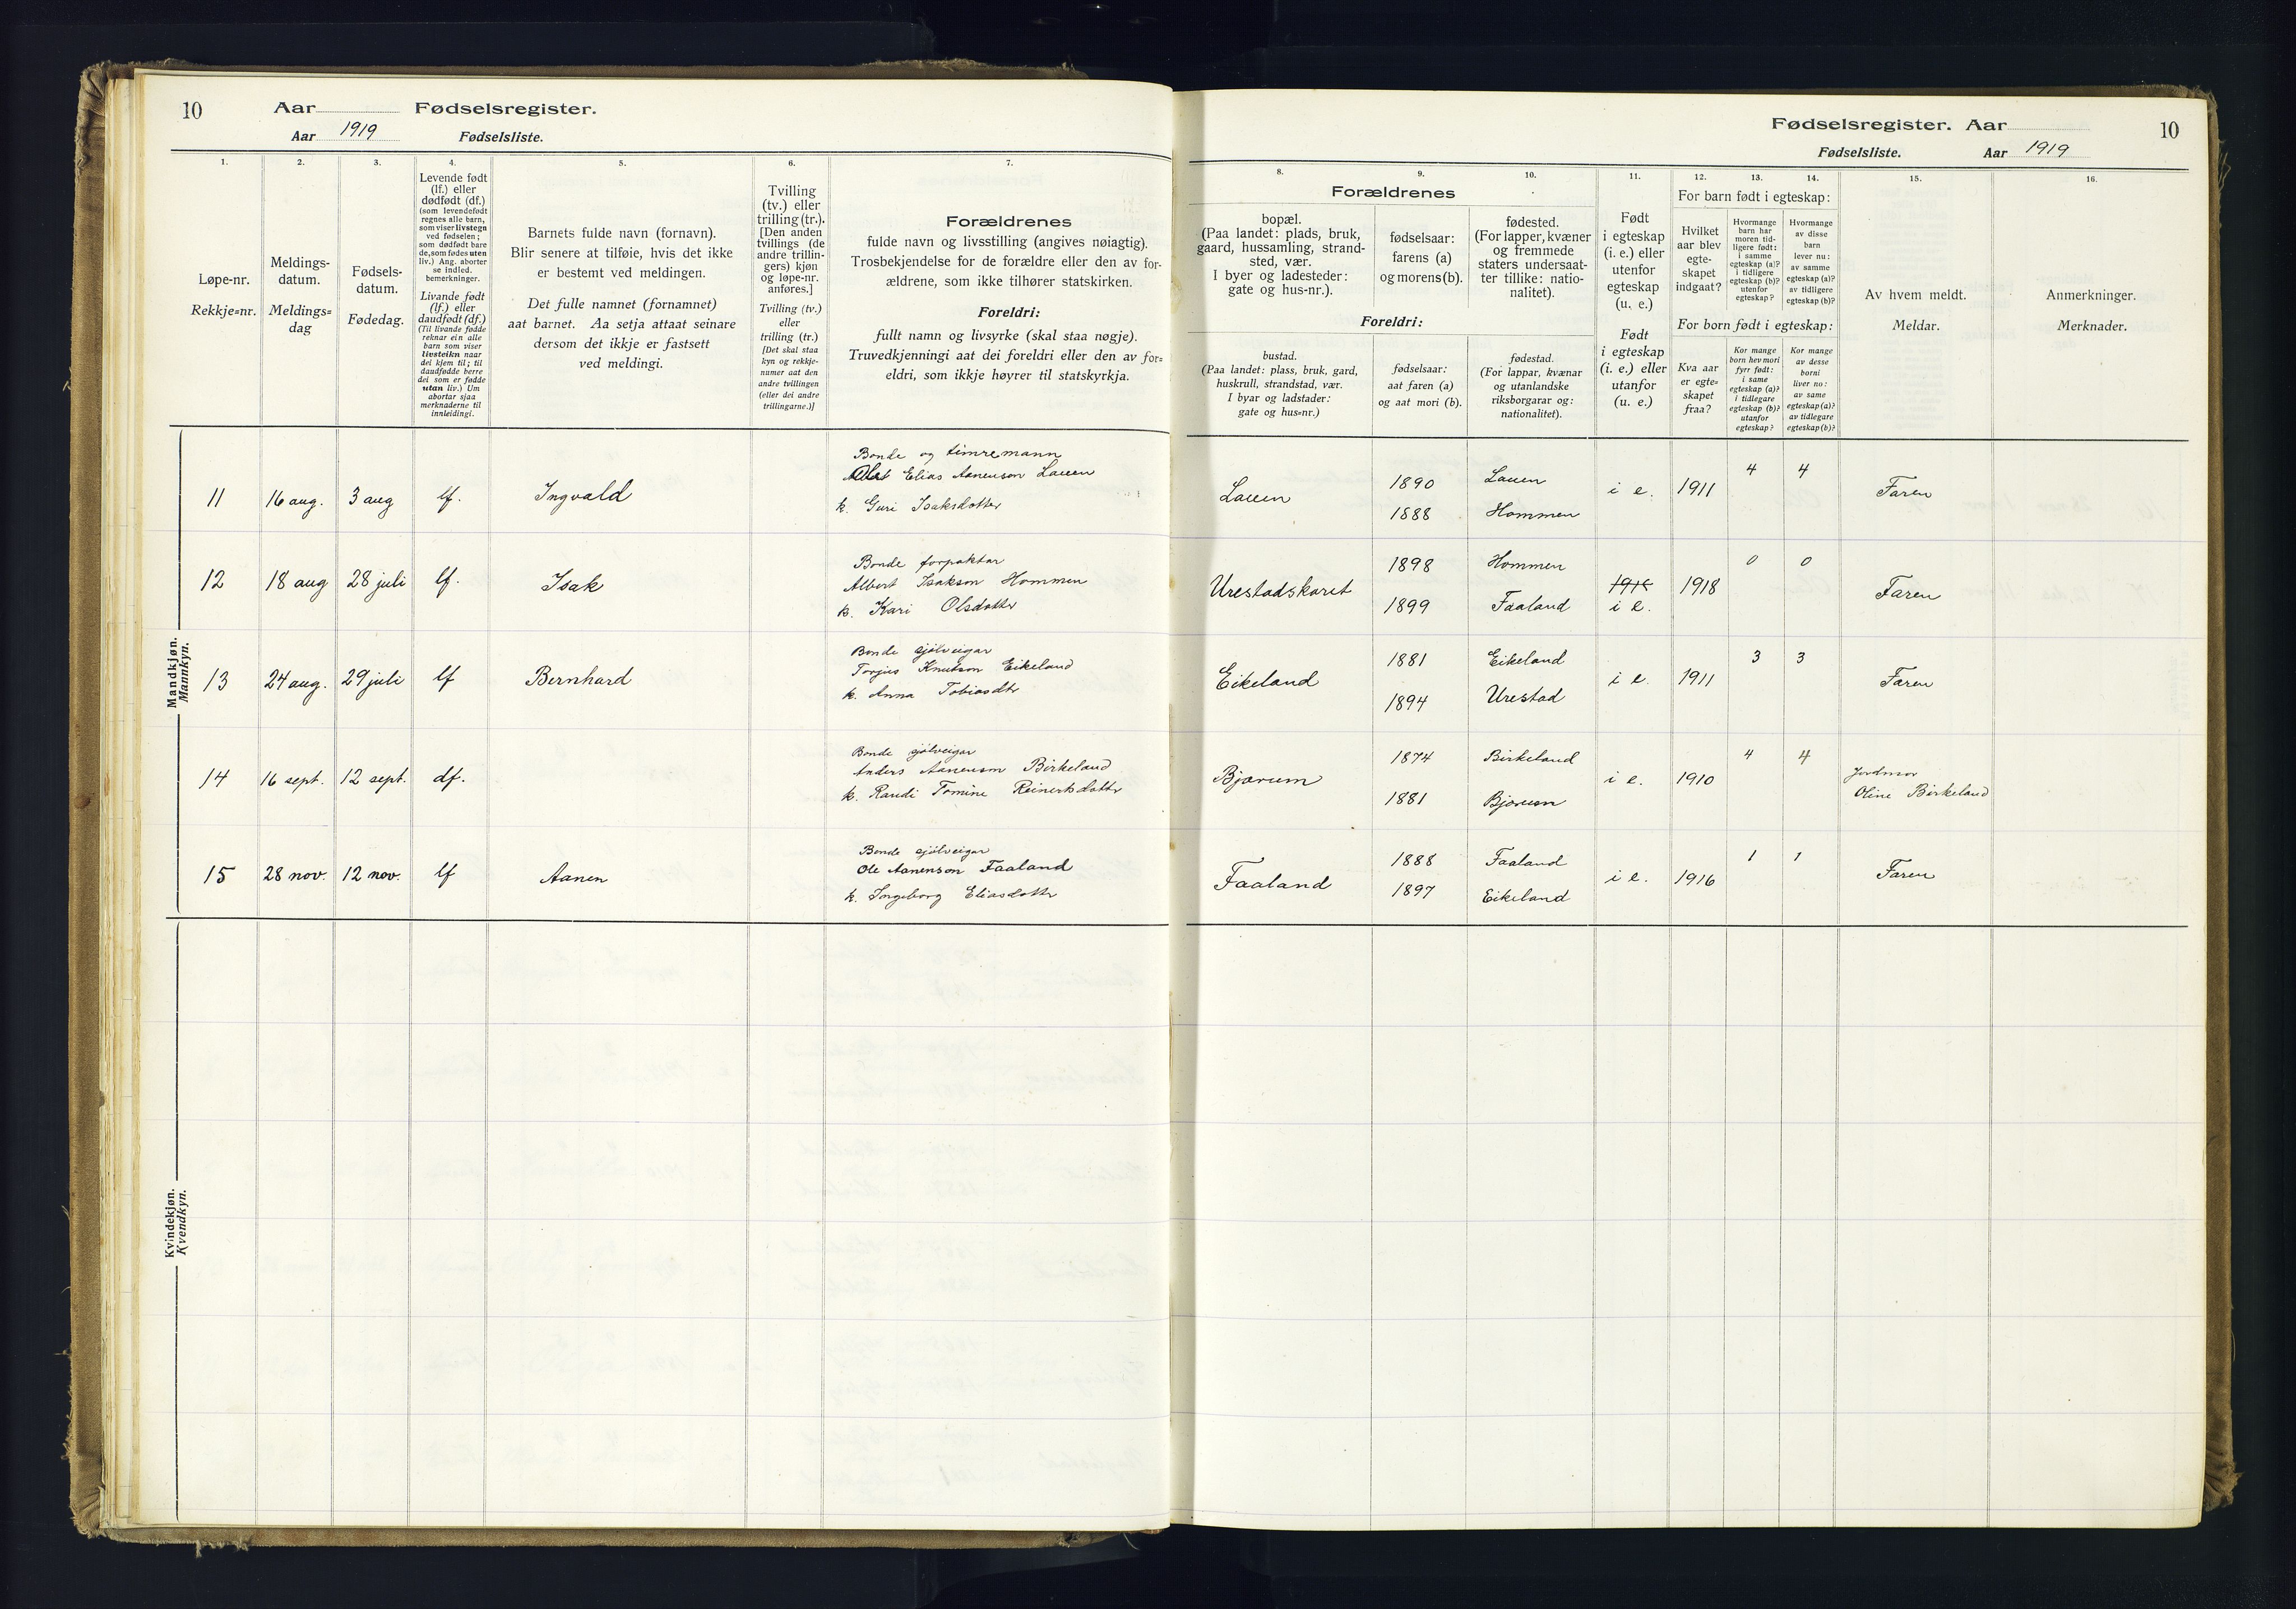 10
Aar
Fødselsregister.
Aar 1919
Fødselsliste.
1.
2.
3.
4.
5.
6.
7.
Løpe-nr.
Rekkje=nr.
Meldings-
datum.
Meldings=
dag
Fødsels-
datum.
Fødedag.
Levende født
(lf.) eller
dødfødt (df.)
(som levendefødt
regnes alle barn,
som viser livstegn
ved fødselen;
som dødfødt bare
de, som fødes uten
liv.) Ang. aborter
se indled.
bemerkninger.
Livande født
(lf.) eller
daudfødt (df.)
(Til livande fødde
reknar ein alle
barn som viser
livsteikn naar
dei kjem til; til
daudfødde berre
dei som er fødde
utan liv.) Um
abortar sjaa
merknaderne til
innleidingi.
Barnets fulde navn (fornavn).
Blir senere at tilføie, hvis det ikke
er bestemt ved meldingen.
Det fulle namnet (fornamnet)
aat barnet. Aa setja attaat seinare
dersom det ikkje er fastsett
ved meldingi.
Tvilling
(tv.) eller
trilling (tr.).
[Den anden
tvillings (de
andre trillin-
gers) kjøn
og løpe-nr.
anføres.]
Tvilling (tv.)
eller
trilling (tr.)
[Det skal staa
kyn og rekkje-
numer aat den
andre tvillingen
(eller dei andre
trillingarne.)]
Forældrenes
fulde navn og livsstilling (angives nøiagtig).
Trosbekjendelse for de forældre eller den av for-
ældrene, som ikke tilhører statskirken.
Foreldri:
fullt namn og livsyrke (skal staa nøgje).
Truvedkjenningi aat dei foreldri eller den av for=
eldri, som ikkje høyrer til statskyrkja.
Mandkjøn.
Mannkyn.
11 16 aug. 3 aug lf. Ingvald
Bonde og timremann
Elias Aanenson Lauen
k. Guri Isaksdotter
12 18 aug 28 juli lf. Isak
Bonde forpaktar
Albert Isakson Hommen
k. Kari Olsdotter
13 24 aug. 29 juli lf Bernhard
Bonde sjølveigar
Torjus Knutson Eikeland
k. Anna Tobiasdtr
14 16 sept. 12 sept. df.
Bonde sjølveigar
Anders Aanenson Birkeland
k. Randi Tomine Reinertsdottr
15 28 nov. 12 nov. lf Aanen
Bonde sjølveigar
Ole Aanenson Faaland
k. Ingeborg Eliasdottr
Kvindekjøn.
Kvendkyn.
Fødselsregister. Aar
10
Fødselsliste.
Aar 1919
8.
9.
10.
11.
12.
13.
14.
15.
16.
Forældrenes
bopæl.
(Paa landet: plads, bruk,
gaard, hussamling, strand-
sted, vær.
I byer og ladesteder:
gate og hus-nr.).
fødselsaar:
farens (a)
og morens (b).
fødested.
(For lapper, kvæner
og fremmede
staters undersaat-
ter tillike: natio-
nalitet).
Foreldri:
bustad.
(Paa landet: plass, bruk, gard,
huskrull, strandstad, vær.
I byar og ladstader:
gate og hus=nr.)
fødselsaar:
aat faren (a)
og aat mori (b).
fødestad.
(For lappar, kvænar
og utanlandske
riksborgarar og:
nationalitet).
Født
i egteskap
(i. e.) eller
utenfor
egteskap
(u. e.)
Født
i egteskap
(i. e.) eller
utanfor
(u. e.)
For barn født i egteskap:
Hvilket
aar blev
egte-
skapet
indgaat?
Hvormange
barn har
moren tid-
ligere født:
i samme
egteskap (a)?
i tidligere
egteskap (b)?
utenfor
egteskap?
Hvormange
av disse
barn
lever nu:
av samme
egteskap (a)?
av tidligere
egteskap (b)?
For born født i egteskap:
Kva aar
er egte=
skapet
fraa?
Kor mange
born hev mori
fyrr født:
i same
egteskap (a)?
i tidlegare
egteskap (b)?
utanfor
egteskap?
Kor mange
av desse
borni
liver no:
av same
egteskap (a)?
av tidlegare
egteskap (b)?
Av hvem meldt.
Meldar.
Anmerkninger.
Merknader.
Lauen 1890 Lauen i e. 1911 4 4 Faren
1888 Hommen
Urestadskaret 1898 Hommen 1918 0 0 Faren
1899 Faaland i e.
Eikeland 1881 Eikeland i e. 1911 3 3 Faren
1894 Urestad
Bjørum 1874 Birkeland i e. 1910 4 4 Jordmor
1881 Bjørum Oline Birkeland
Faaland 1888 Faaland i e. 1916 1 1 Faren
1897 Eikeland